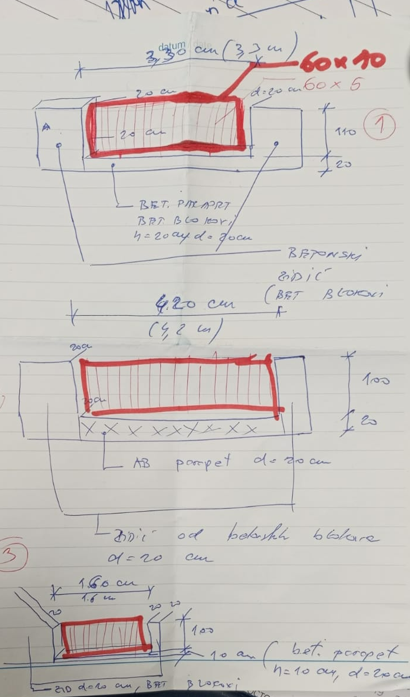 datum
3,30 cm (3,3 m)
60 x 10
20 cm
d=20 cm
60 x 5
A
20 cm
110
1
20
BET. PARAPET
BET BLOKOVI
h=20 cm d=20cm
BETONSKI
ZIDIĆ
(BET BLOKOVI
420 cm
(4,2 m)
20cm
100
20
AB parapet d=20 cm
Zidić od betonskih blokova
d=20 cm
3
160 cm
1.6 m
20
20 20
100
10 cm (bet. parapet
h=10 cm, d=20cm
ZID d=20 cm, BET BLOKOVI